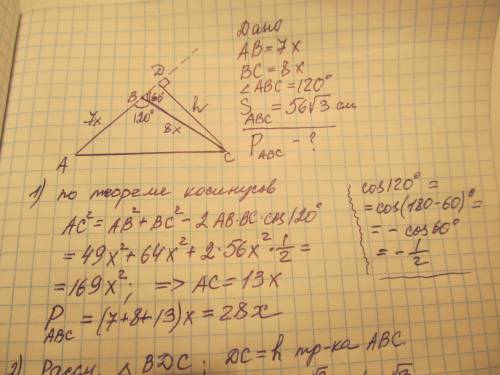 Дано
AB = 7x
BC = 8x
∠ABC = 120°
S ABC = 56√3 см
P ABC - ?
D
B 60°
h
7x 120° 8x
A C
1) по теореме косинусов
AC² = AB² + BC² - 2AB·BC·cos120°
= 49x² + 64x² + 2·56x²·1/2 =
= 169x²; => AC = 13x
P ABC = (7+8+13)x = 28x
cos120° =
= cos(180-60)° =
= - cos60°
= - 1/2
2) Рассм. △ BDC; DC = h тр-ка ABC